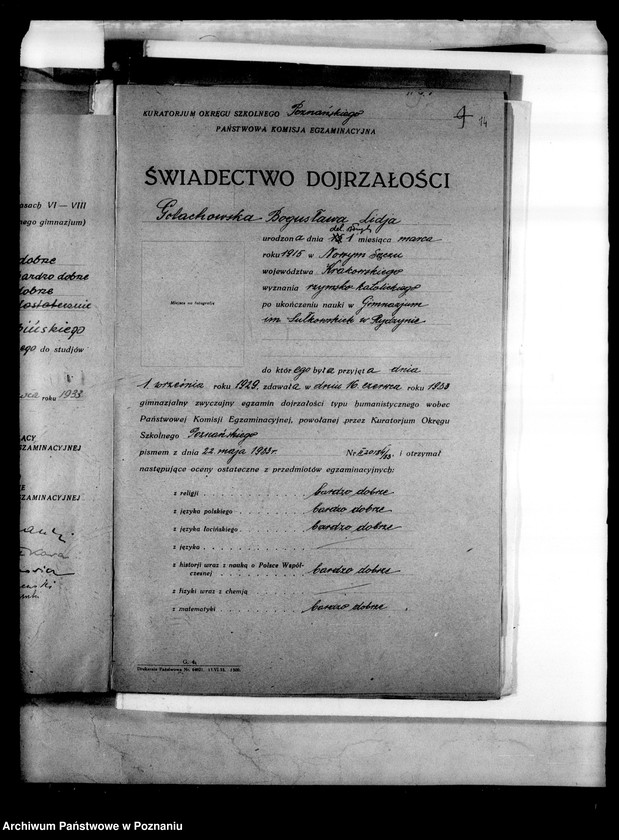 asach VI — VIII
nego gimnazjum)
dobre
bardzo dobre
dobre
dostatecznie
bińskiego
ego do studjów
roku 1933
ACY
GZAMINACYJNEJ
IE
GZAMINACYJNEJ
14
KURATORJUM OKRĘGU SZKOLNEGO Poznańskiego
PAŃSTWOWA KOMISJA EGZAMINACYJNA
ŚWIADECTWO DOJRZAŁOŚCI
Gołachowska Bogusława Lidja
urodzona dnia 1 miesiąca marca
roku 1915 w Nowym Sączu
województwa Krakowskiego
wyznania rzymsko katolickiego
Miejsce na fotografję
po ukończeniu nauki w Gimnazjum
im. Sułkowskich w Rydzynie
do którego była przyjęta dnia
1. września roku 1929 zdawała w dniu 16 czerwca roku 1933
gimnazjalny zwyczajny egzamin dojrzałości typu humanistycznego wobec
Państwowej Komisji Egzaminacyjnej, powołanej przez Kuratorjum Okręgu
Szkolnego Poznańskiego
pismem z dnia 22 maja 1933 r. Nr. , i otrzymał
następujące oceny ostateczne z przedmiotów egzaminacyjnych:
z religji . . . . . . . . . bardzo dobre
z języka polskiego . . . . . . . bardzo dobre
z języka łacińskiego . . . . . . bardzo dobre
z języka . . . . . . . . .
z historji wraz z nauką o Polsce Współ-
czesnej . . . . . . . . bardzo dobre
z fizyki wraz z chemją . . . . . .
z matematyki . . . . . . . . bardzo dobre
G. 4.
Drukarnia Państwowa Nr.
Archiwum Państwowe w Poznaniu